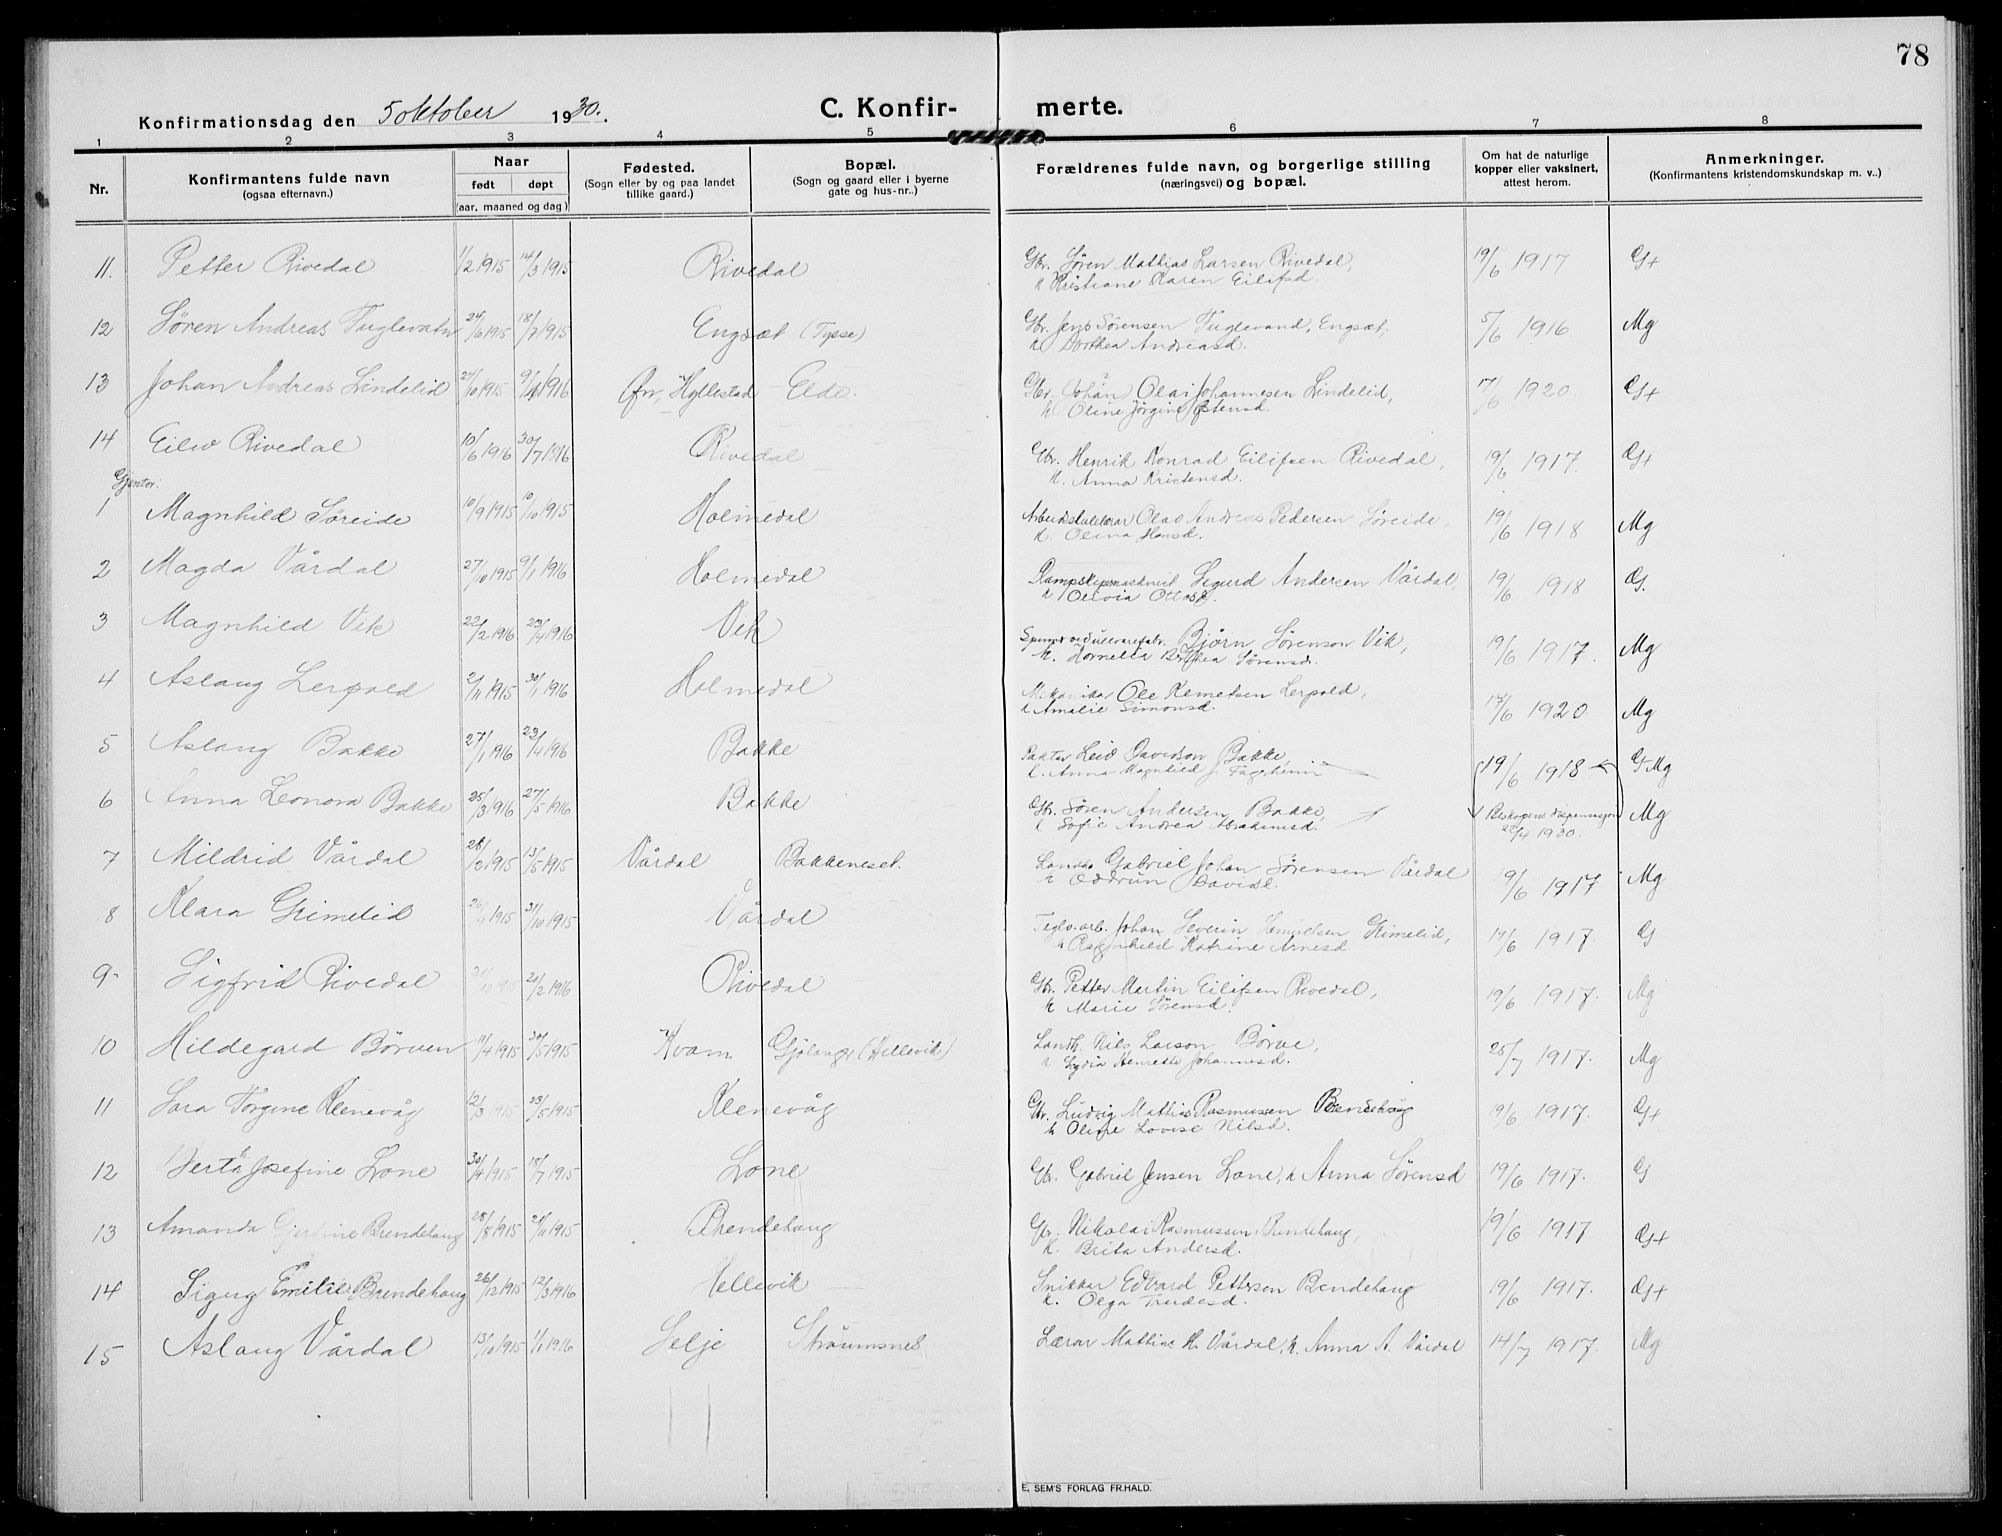 78
Konfirmationsdag den 5 oktober 1930.
C. Konfir- merte.
1 2 3 4 5 6 7 8
Nr. Konfirmantens fulde navn (ogsaa efternavn.) Naar født døpt (aar, maaned og dag)
Fødested. (Sogn eller by og paa landet tillike gaard.)
Bopæl. (Sogn og gaard eller i byerne gate og hus-nr..)
Forældrenes fulde navn, og borgerlige stilling (næringsvei) og bopæl.
Om hat de naturlige kopper eller vaksinert, attest herom.
Anmerkninger. (Konfirmantens kristendomskundskap m. v..)
11. Petter Rivedal 1/2 1915 14/3 1915 Rivedal Gbr. Søren Mathias Larsen Rivedal, 19/6 1917 G+
k Kristiane Karen Eilifsd.
12 Søren Andreas Fuglevatn 24/6 1915 18/7 1915 Engsæt (Tysse) Gbr. Jens Sørensen Fuglevand, Engsæt, 5/6 1916 Mg
k Dorthea Andreasd.
13 Johan Andreas Lindelid 24/10 1915 9/4 1916 Øn, Hyllestad Elde. Gbr. (Johan) Olai Johannesen Lindelid, 17/6 1920 G+
k Oline Jørgine Østensd.
14 Eiliv Rivedal 10/6 1916 30/7 1916 Rivedal Gbr. Henrik Konrad Eilifsen Rivedal, 19/6 1917. G+
k. Anna Kristensd.
Gjentor:
1 Magnhild Søreide 10/9 1915 10/10 1915 Holmedal Olav Andreas Pedersen Søreide, 19/6 1918 Mg
k. Olina Hansd.
2 Magda Vårdal 27/10 1915 9/1 1916 Holmedal Sigurd Andersen Vårdal, 19/6 1918 G.
3 Magnhild Vik 22/2 1916 23/4 1916 Vik Bjørn Sørenson Vik, 19/6 1917. Mg
k. Kornelia Berthea Sørensd.
4 Aslaug Lerpold 2/11 1915 30/1 1916 Holmedal Mekanikar Ole Klemetsen Lerpold, 1920. Mg
k Amalie Simonsd.
5 Aslaug Bakke 27/1 1916 23/4 1916 Bakke Leiv Davidson Bakke, 19/6 1918 G-Mg
k. Anna Magnhild f. Fagerheim
6 Anna Leonora Bakke 25/3 1916 27/5 1916 Bakke Gbr. Søren Andersen Bakke, Biskopens dispensasjon Mg
k Sofie Andrea Abrahamsd. 22/4 1930.
7 Mildrid Vårdal 28/2 1915 13/5 1915 Vårdal Bakkeneset. Landh. Gabriel Johan Sørensen Vårdal 19/6 1917 Mg
k Oddrun Davidsd.
8 Klara Grimelid 1915 31/10 1915 Vårdal Teglv.arb. Johan Severin Samuelsen Grimelid, 19/6 1917. G
k Ragnhild Katrine Arnesd
9 Sigfrid Rivedal 20/2 1916 Rivedal Gbr. Petter Martin Eilifsen Rivedal, 19/6 1917. Mg
k Marie Sørensd.
10 Hildegard Børven 11/4 1915 30/5 1915 Kvam Gjølanger (Hellevik) Landh. Nils Larson Børve, 25/7 1917. Mg
k Lydia Henrette Johannesd.
11 Sara Torgine Klenevåg 12/3 1915 23/5 1915 Klenevåg Gbr. Ludvig Mathias Rasmussen Brendehaug 19/6 1917. G+
k Oline Lovise Nilsd.
12 Berta Josefine Lone 30/4 1915 18/7 1915 Lone Gbr. Gabriel Jensen Lone, k Anna Sørensd 19/6 1917. G
13 Amanda Gjertine Brendehaug 28/8 1915 21/11 1915 Brendehaug Gbr. Nikolai Rasmussen Brendehaug, 19/6 1917 G+
k. Brita Andersd.
14 Signy Emilie Brendehaug 26/12 1915 12/3 1916 Hellevik Snikkar Edvard Pettersen Brendehaug 19/6 1917. G+
k. Olga Trudesd.
15 Aslaug Vårdal 13/10 1915 1/1 1916 Selje Straumsnes Lærar Mathias H. Vårdal, k. Anna A. Vårdal 14/7 1917. Mg
E. SEM'S FORLAG FR.HALD.